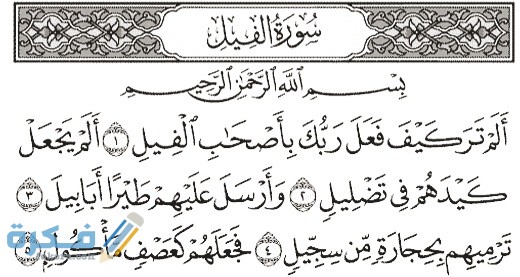 سُورَةُ الفِيلِ
بِسْمِ اللَّهِ الرَّحْمَٰنِ الرَّحِيمِ
أَلَمْ تَرَ كَيْفَ فَعَلَ رَبُّكَ بِأَصْحَابِ الْفِيلِ ١ أَلَمْ يَجْعَلْ
كَيْدَهُمْ فِي تَضْلِيلٍ ٢ وَأَرْسَلَ عَلَيْهِمْ طَيْرًا أَبَابِيلَ ٣
تَرْمِيهِم بِحِجَارَةٍ مِّن سِجِّيلٍ ٤ فَجَعَلَهُمْ كَعَصْفٍ مَّأْكُولٍ ٥
فكرة